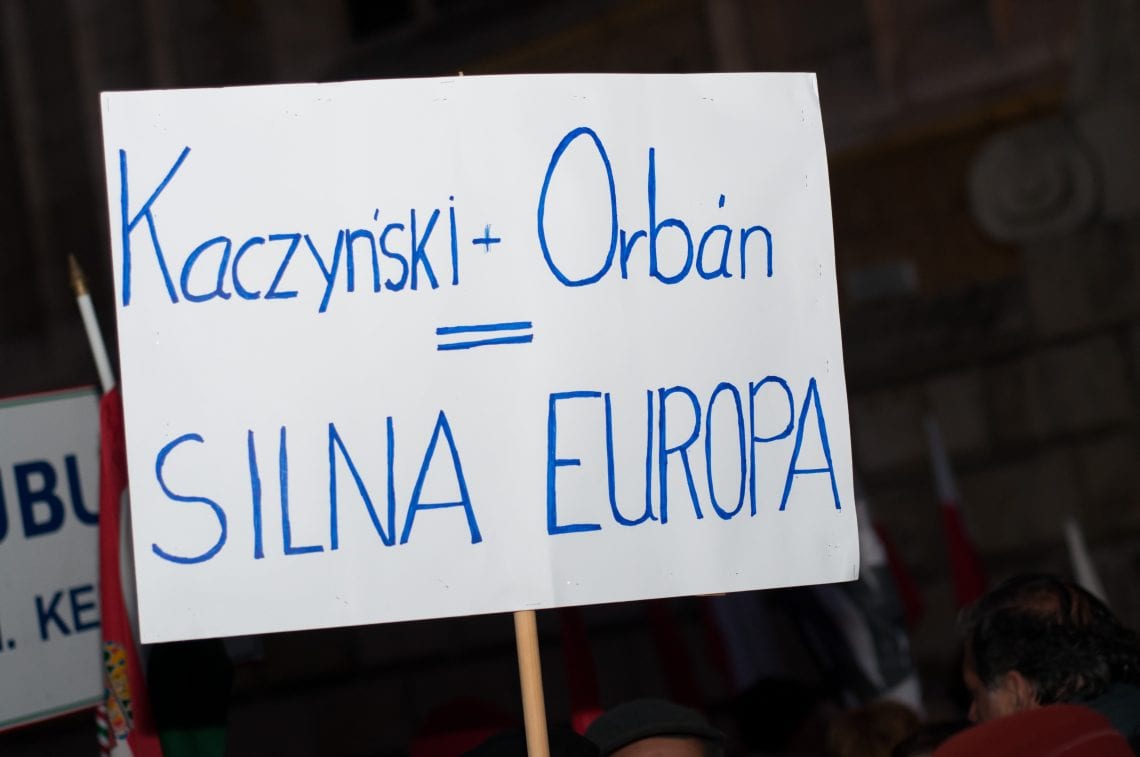 Kaczyński + Orbán
=
SILNA EUROPA
KE